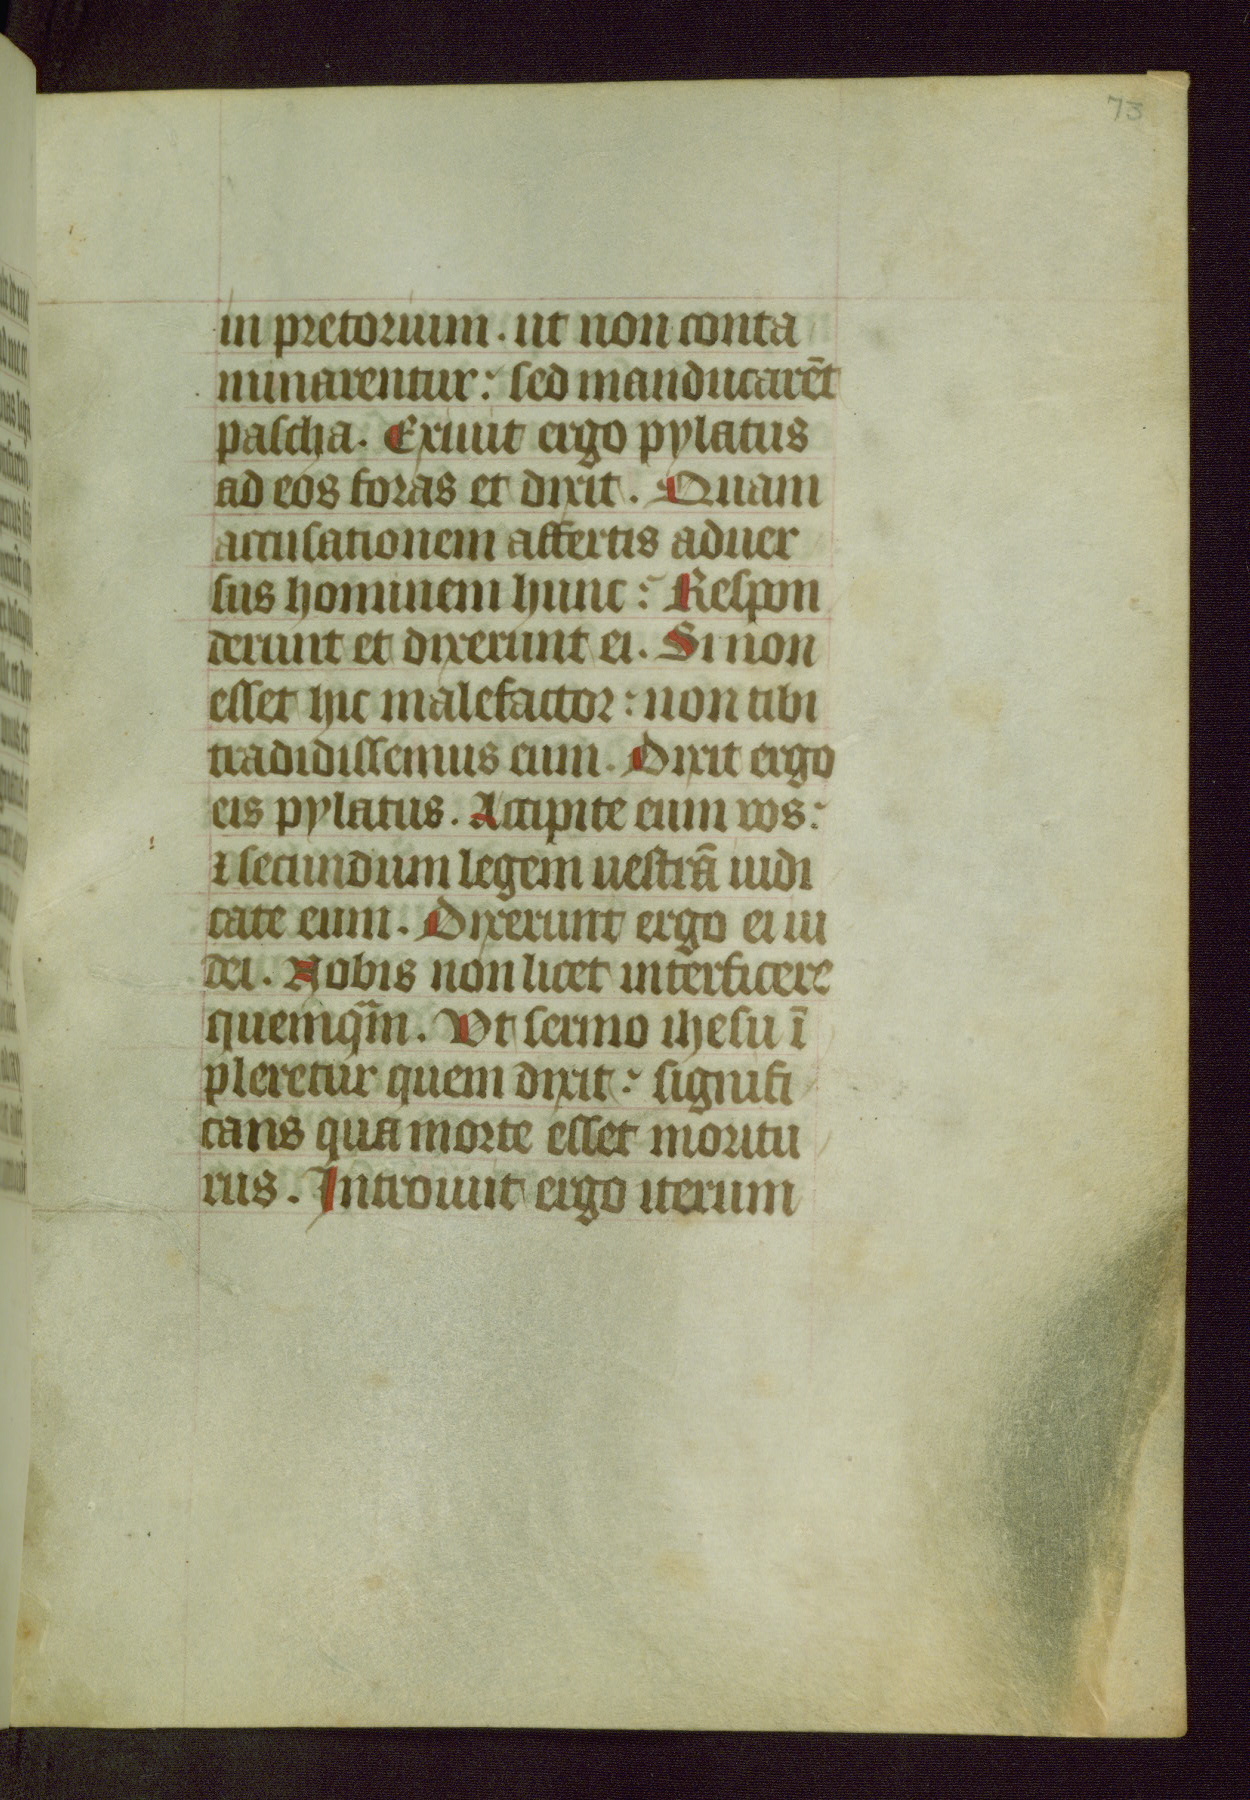 73
in pretorium. ut non conta
minarentur: sed manducarēt
pascha. Exiuit ergo pylatus
ad eos foras et dixit. Quam
accusationem affertis aduer
sus hominem hunc: Respon
derunt et dixerunt ei. Si non
esset hic malefactor: non tibi
tradidissemus eum. Dixit ergo
eis pylatus. Accipite eum vos:
⁊ secundum legem uestrā iudi
cate eum. Dixerunt ergo ei iu
dei. Nobis non licet interficere
quemqᷓm. Vt sermo ihesu ī
pleretur quem dixit: signifi
cans qua morte esset moritu
rus. Introiuit ergo iterum